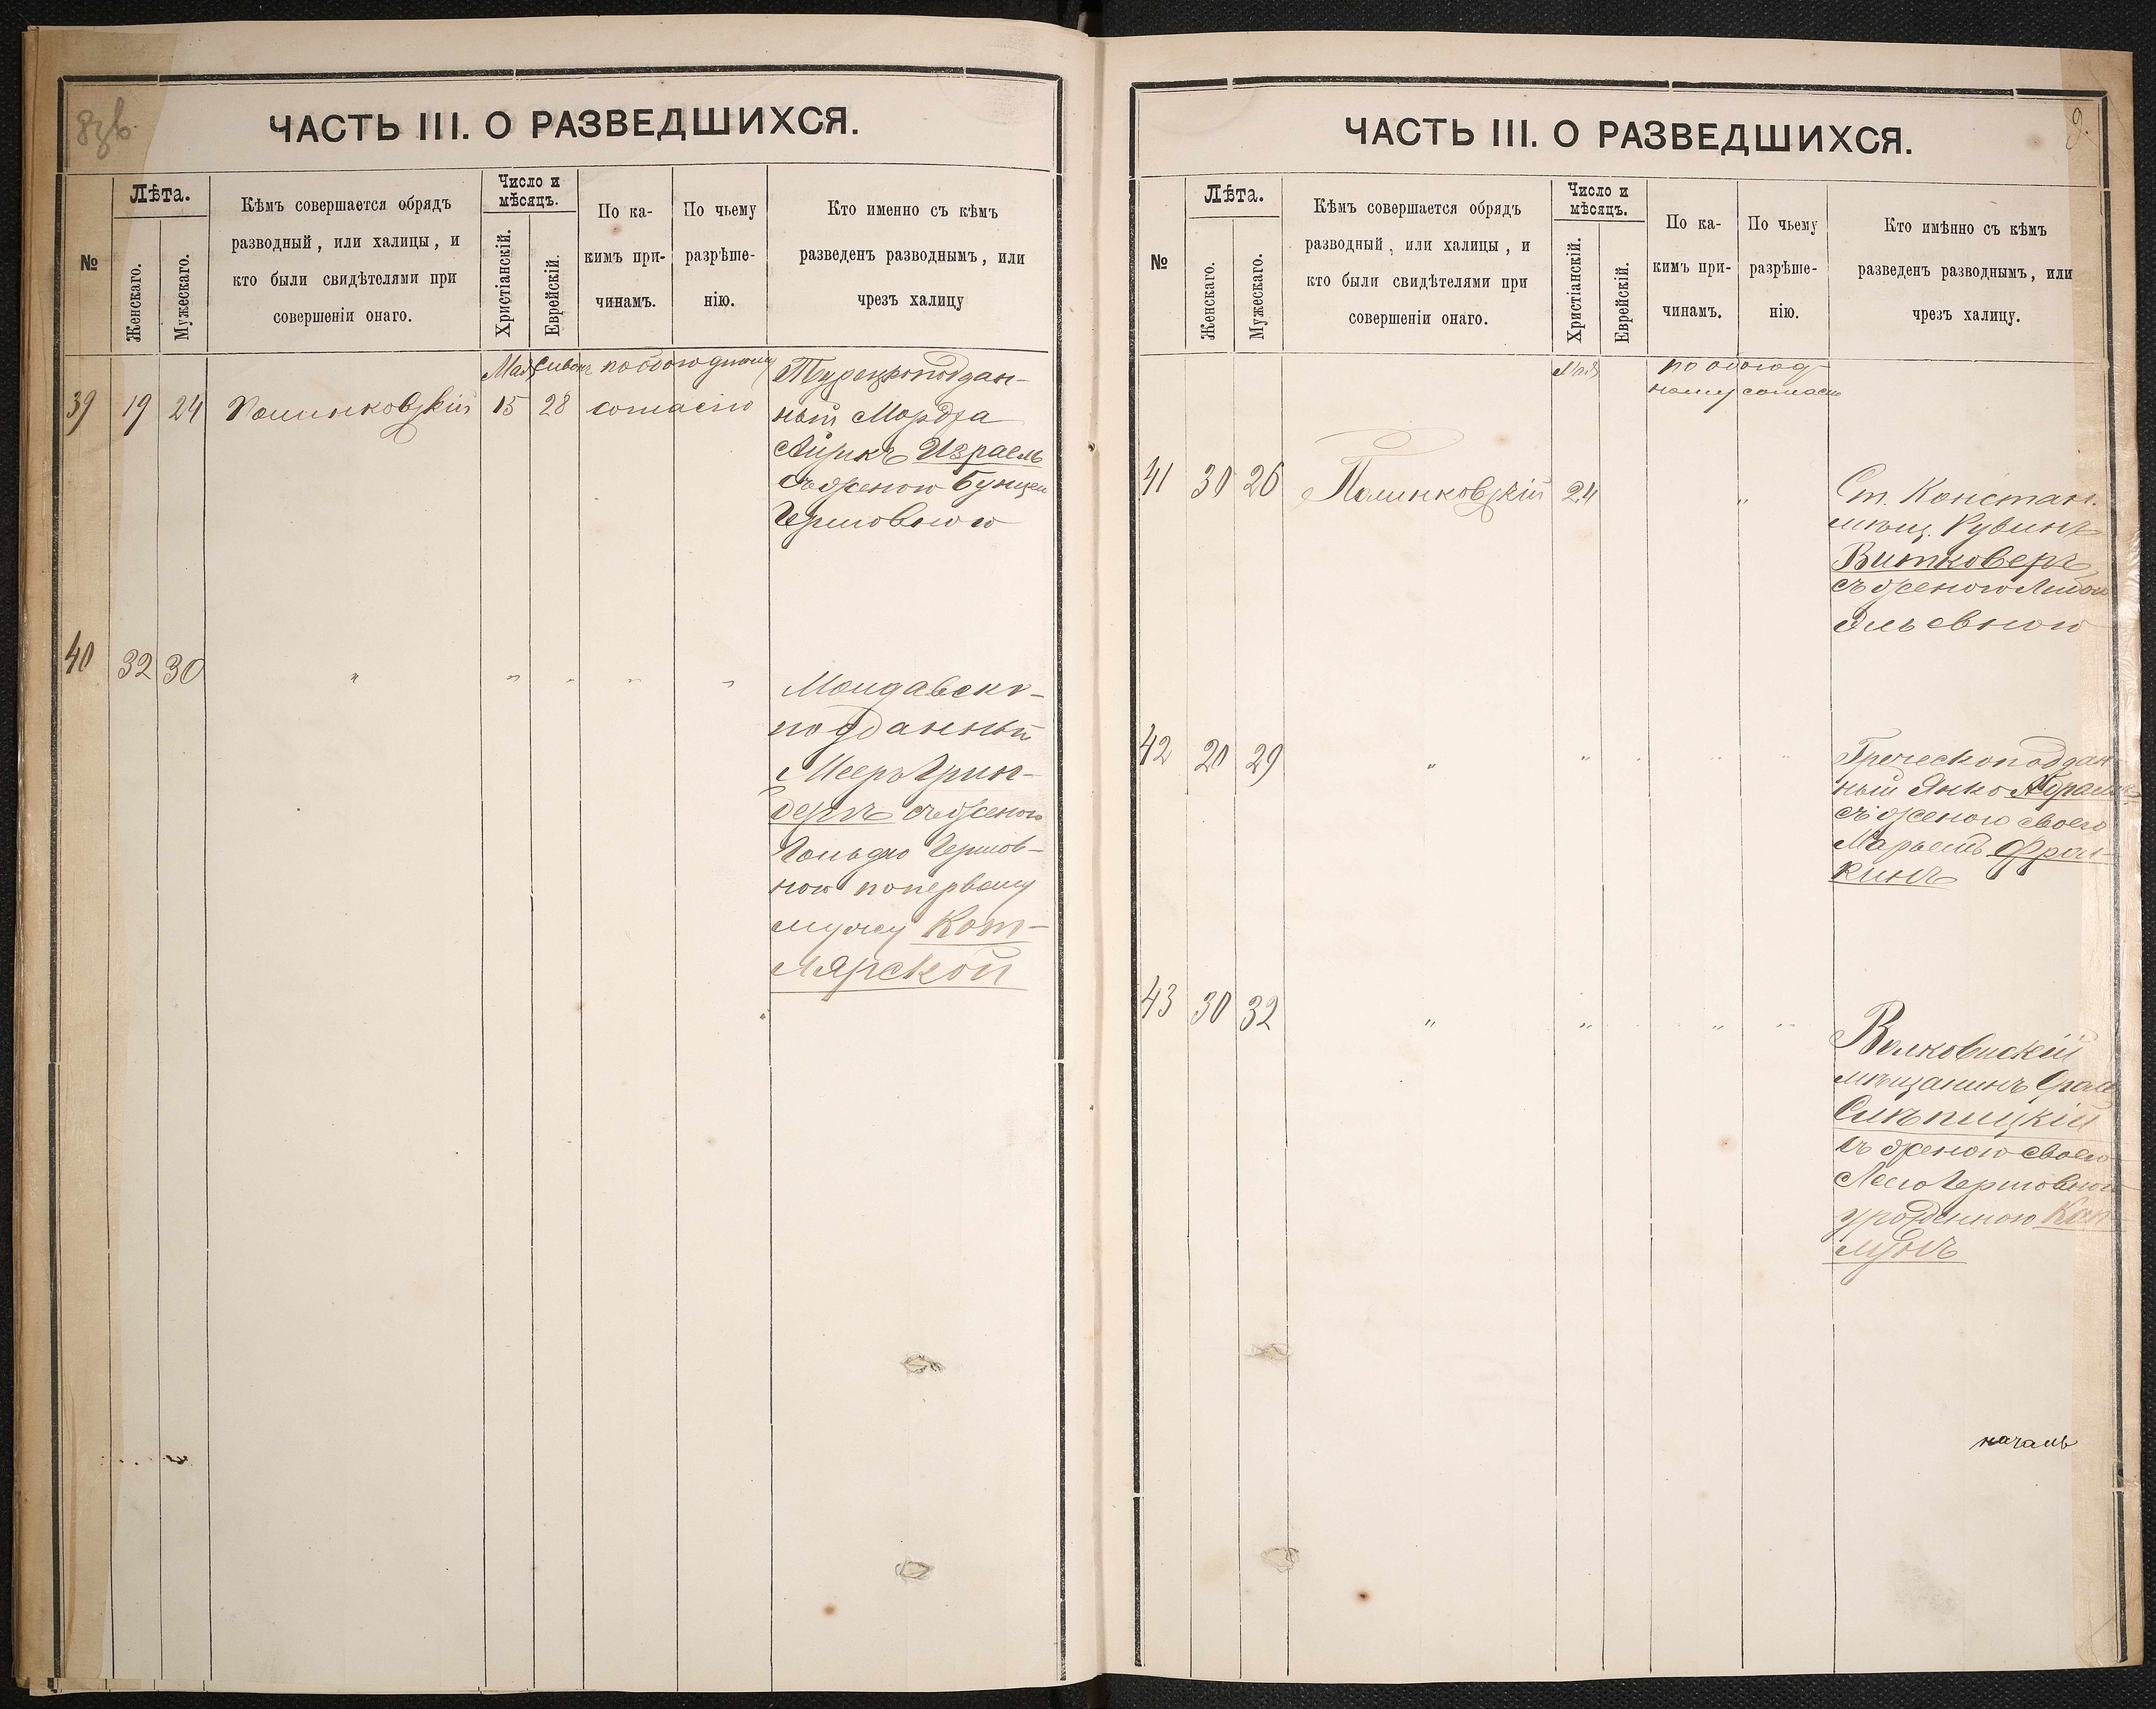 ЧАСТЬ III. О РАЗВЕДШИХСЯ.
№
Лѣта.
Женскаго.
Мужескаго.
Кѣмъ совершается обрядъ
разводный, или халицы, и
кто были свидѣтелями при
совершеніи онаго.
Число и
мѣсяцъ.
Христіанскій.
Еврейскій.
По ка-
кимъ при-
чинамъ.
По чьему
разрѣше-
нію.
Кто именно съ кѣмъ
разведенъ разводнымъ, или
чрезъ халицу
Мая Сивонъ по обоюдному
39 19 24 Полинковскій 15 28 согласію
Турецкоподдан-
ный Мордха
Айзикъ Израель
съ женою Бунцею
Гершовною
40 32 30 " " " " "
Молдавско-
подданный
Мееръ Грин-
бергъ съ женою
Гольдою Гершов-
ною по первому
мужу Кот-
лярской
ЧАСТЬ III. О РАЗВЕДШИХСЯ.
9.
№
Лѣта.
Женскаго.
Мужескаго.
Кѣмъ совершается обрядъ
разводный, или халицы, и
кто были свидѣтелями при
совершеніи онаго.
Число и
мѣсяцъ.
Христіанскій.
Еврейскій.
По ка-
кимъ при-
чинамъ.
По чьему
разрѣше-
нію.
Кто имѣнно съ кѣмъ
разведенъ разводнымъ, или
чрезъ халицу.
по обоюд-
ному согласію
41 30 26 Полинковскій 24 "
Ст. Констан.
мѣщ. Рувинъ
Витковеръ
съ женою
Эльевною
42 20 29 " " " "
Греческоподдан
ный Янко
съ женою своею
Марьемъ Фрал-
кинъ
43 30 32 " " " "
Волковискій
мѣщанинъ
Слѣпицкій
съ женою своею
Леею Гершовною
урожденною Кап-
лунъ